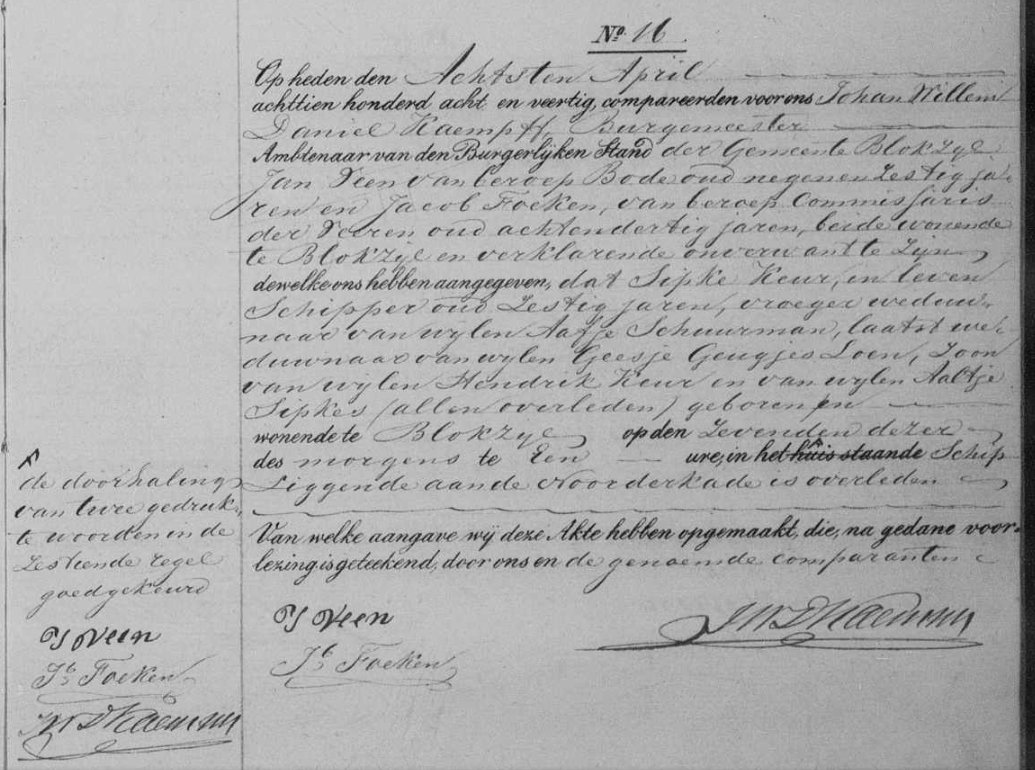 No. 16
Op heden den Achtsten April
achttien honderd acht en veertig, compareerden voor ons Johan Willem
Daniel Kaempff, Burgemeester
Ambtenaar van den Burgerlijken Stand der Gemeente Blokzyl
Jan Veen van beroep Bode oud negen en Zestig ja-
ren en Jacob Foeken, van beroep Commissaris
der Veeren oud achtendertig jaren, beide wonende
te Blokzyl en verklarende onverwant te Zijn
dewelke ons hebben aangegeven, dat Sipke Keur, in leven
Schipper oud Zestig jaren, vroeger weduw-
naar van wylen Aafje Schuurman, laatst we-
duwnaar van wylen Geesje Geugjes Loen, Zoon
van wijlen Hendrik Keur en van wylen Aaltje
Sipkes (allen overleden) geboren en
wonende te Blokzyl op den Zevenden dezer
des morgens te Een ure, in het huis staande Schip
Liggende aan de Noorderkade is overleden
Van welke aangave wij deze Akte hebben opgemaakt, die, na gedane voor-
lezing is geteekend, door ons en de genoemde comparanten
de doorhaling
van twee gedruk-
te woorden in de
Zestiende regel
goedgekeurd
J Veen
Jb Foeken
JWDKaempff
J Veen
Jb Foeken
JWDKaempff